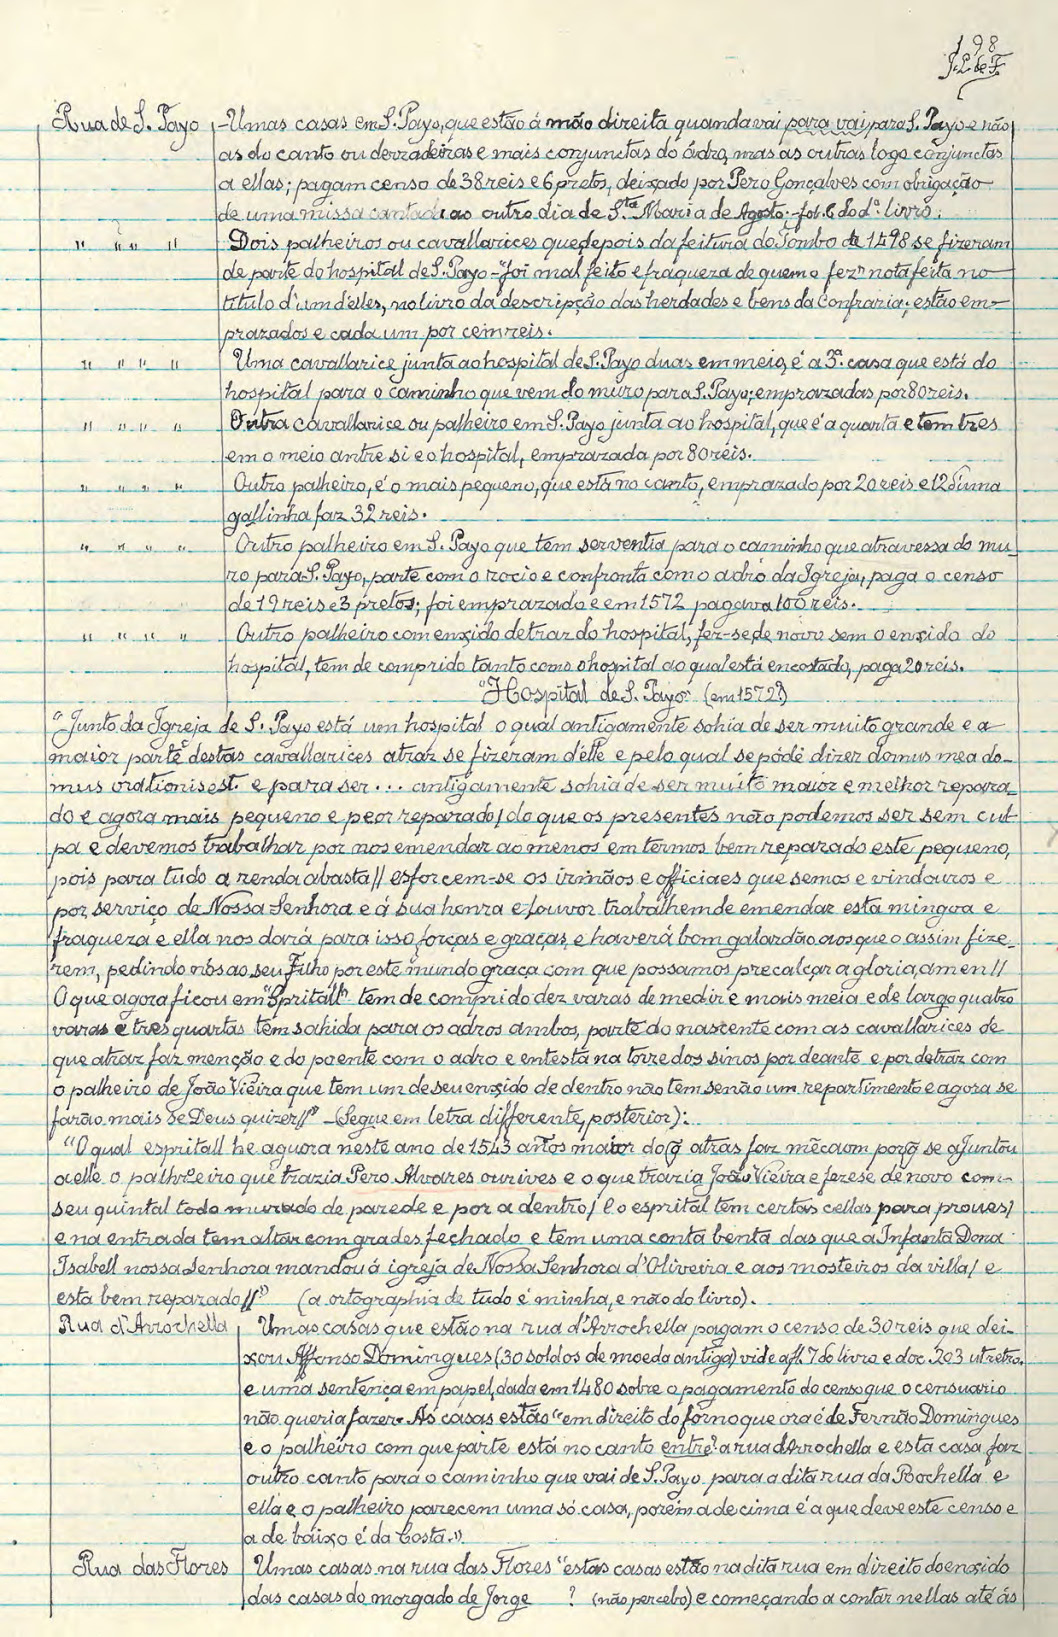 198
J.L. de F.
Rua de S. Payo - Umas casas em S. Payo, que estão á mão direita quando vai para vai, para S. Payo e não
as do canto ou derradeiras e mais conjunctas do ádro, mas as outras logo conjunctas
a ellas; pagam censo de 38 reis e 6 pretos, deixado por Pero Gonçalves com obrigação
de uma missa cantada ao outro dia de S.ta Maria de Agosto; - fol. 6 do d.º livro.
" " " " Dois palheiros ou cavallarices que depois da feitura do Tombo de 1498 se fizeram
de parte do hospital de S. Payo - "foi mal feito e fraqueza de quem o fez" nota feita no
titulo d'um d'elles, no livro da descripção das herdades e bens da Confraria; estão em-
prazados e cada um por cem reis.
" " " " Uma cavallarice junta ao hospital de S. Payo duas em meio, é a 3ª casa que está do
hospital para o caminho que vem do muro para S. Payo; emprazadas por 80 reis.
" " " " Outra cavallarice ou palheiro em S. Payo junta ao hospital, que é a quarta e tem tres
em o meio antre si e o hospital, emprazada por 80 reis.
" " " " Outro palheiro, é o mais pequeno, que está no canto, emprazado por 20 reis e 12 d'uma
gallinha faz 32 reis.
" " " " Outro palheiro em S. Payo que tem serventia para o caminho que atravessa do mu-
ro para S. Payo, parte com o rocio e confronta com o adro da Igreja, paga o censo
de 19 reis e 3 pretos; foi emprazado e em 1572 pagava 100 reis.
" " " " Outro palheiro com enxido detraz do hospital, fez-se de novo sem o enxido do
hospital, tem de comprido tanto como o hospital ao qual está encostado, paga 20 reis.
"Hospital de S. Payo" (em 1572?)
"Junto da Igreja de S. Payo está um hospital o qual antigamente sohia de ser muito grande e a
maior parte destas cavallarices atraz se fizeram d'elle e pelo qual se póde dizer domus mea do-
mus orationis est. e para ser ... antigamente sohia de ser muito maior e melhor repara-
do e agora mais pequeno e peor reparado / do que os presentes não podemos ser sem cul-
pa e devemos trabalhar por nos emendar ao menos em termos bem reparado este pequeno,
pois para tudo a renda abasta // esforcem-se os irmãos e officiaes que semos e vindouros e
por serviço de Nossa Senhora e á sua honra e louvor trabalhem de emendar esta mingoa e
fraqueza e ella nos dará para isso forças e graças, e haverá bom galardão aos que o assim fize-
rem, pedindo nós ao seu Filho por este mundo graça com que possamos precalçar a gloria, amen //
O que agora ficou em "Sprital" tem de comprido dez varas de medir e mais meia e de largo quatro
varas e tres quartas tem sahida para os adros ambos, parte do nascente com as cavallarices de
que atraz faz menção e do poente com o adro e entesta na torre dos sinos por deante e por detraz com
o palheiro de João Vieira que tem um de seu enxido de dentro não tem senão um repartimento e agora se
farão mais se Deus quizer //" - (Segue em letra differente, posterior):
"O qual espritall he aguora neste ano de 1543 años maior do q̃ atras faz mẽçaom porq̃ se ajuntou
a elle o palheiro que trazia Pero Alvares ourives e o que trazia João Vieira e fezese de novo com
seu quintal todo murado de parede e por a dentro / E o esprital tem certas cellas para proves /
e na entrada tem altar com grades fechado e tem uma conta benta das que a Infanta Dona
Isabell nossa senhora mandou á igreja de Nossa Senhora d'Oliveira e aos mosteiros da villa / e
esta bem reparado //" (a ortographia de tudo é minha, e não do livro).
Rua d'Arrochella Umas casas que estão na rua d'Arrochella pagam o censo de 30 reis que dei-
xou Affonso Domingues (30 soldos de moeda antiga) vide a fl. 7 do livro e doc. 203 ut retro,
e uma sentença em papel, dada em 1480 sobre o pagamento do censo que o censuario
não queria fazer. As casas estão "em direito do fôrno que ora é de Fernão Domingues
e o palheiro com que parte está no canto entre? a rua d'Arrochella e esta casa faz
outro canto para o caminho que vai de S. Payo para a dita rua da Rochella e
ella e o palheiro parecem uma só casa, porém a de cima é a que deve este censo e
a de baixo é da Costa."
Rua das Flores Umas casas na rua das Flores "estas casas estão na dita rua em direito do enxido
das casas do morgado de Jorge ? (não percebo) e começando a contar nellas até ás